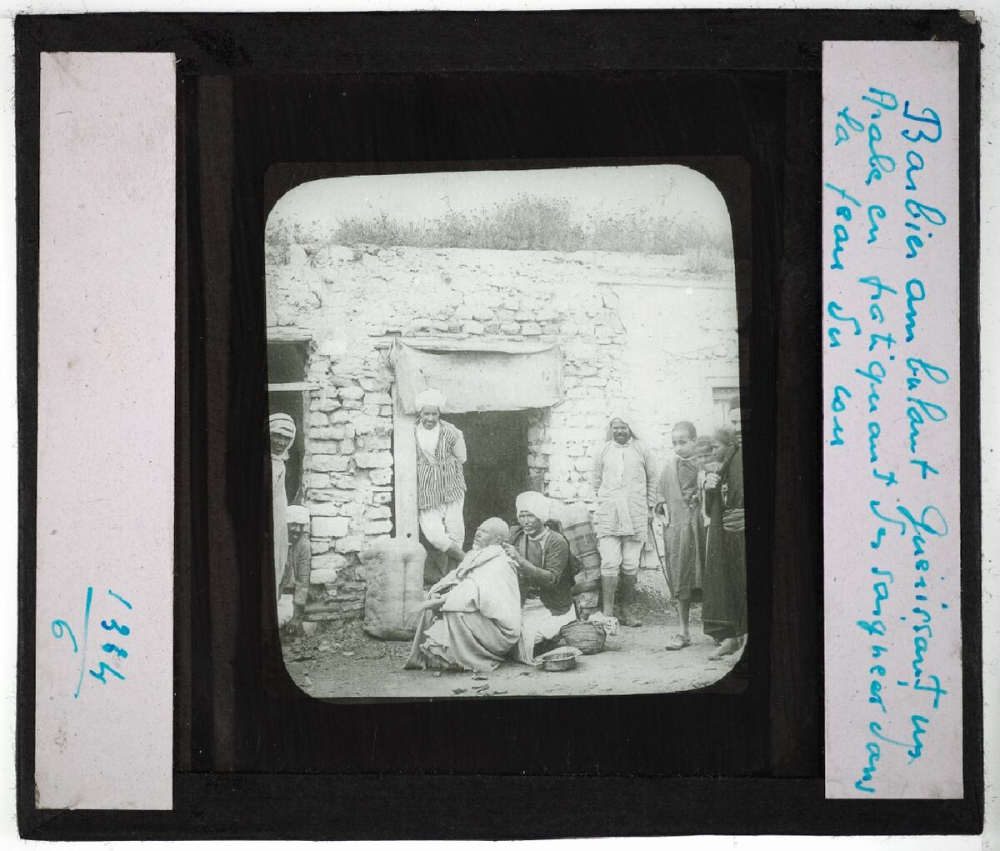 Barbier ambulant guérissant un
Arabe en pratiquant des sangsues dans
la peau du cou
1384
6